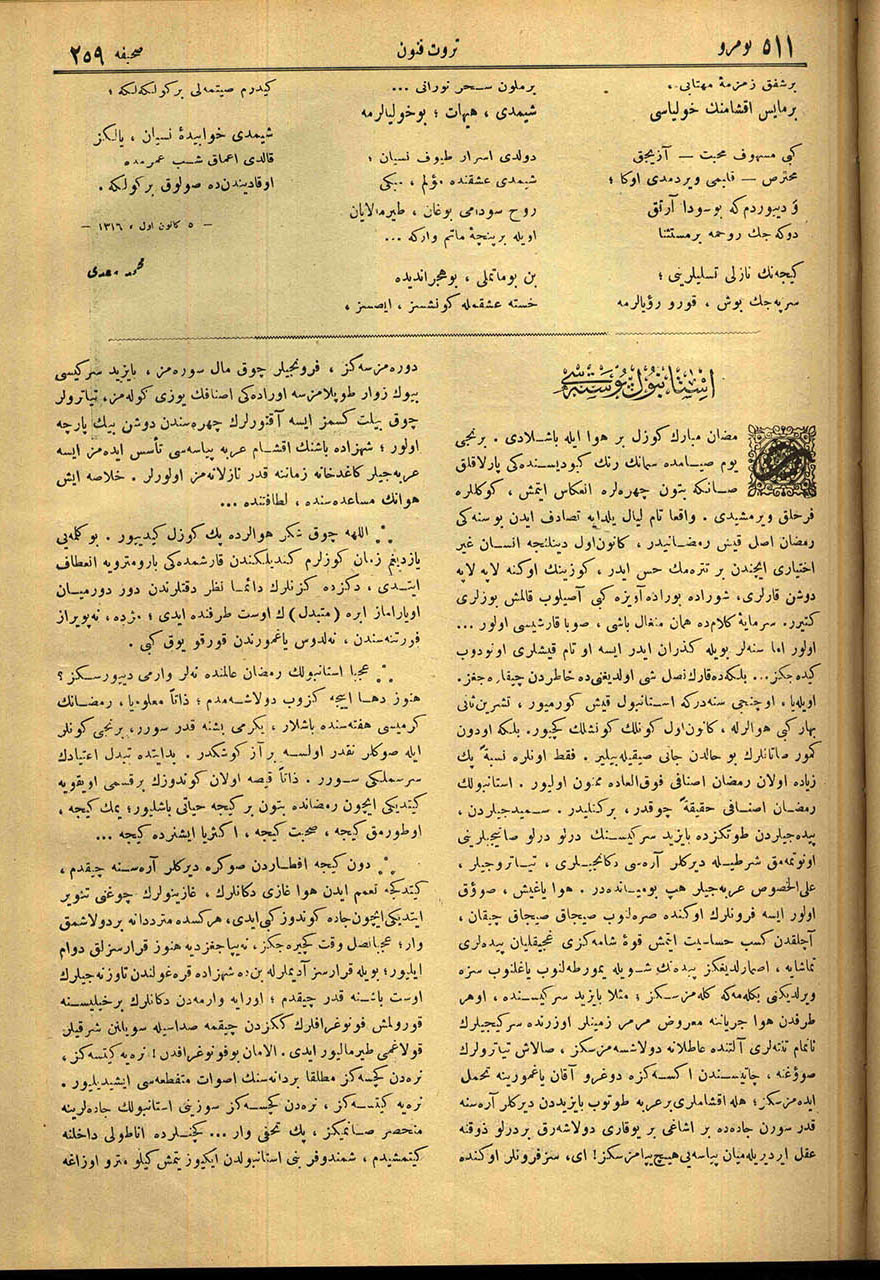 ۵۱۱ نومرو
ثروت فنون
صحیفه ۲۵۹
برشفق زمزمهٔ مهتابی ،
برمایس اقشامنك خولیاسی
كبی مسهوف محبت — آزیجق
محترص — قلبمی ویردمدی اوكا ؛
و دییوردم كه بوسودا آرتق
دوكه جك روحمه برمستثنا
كیجه‌نك نازلی تسلیلرینی ؛
سرپه جك بوش ، قورو رؤیالرمه
برملون سحر نورانی ...
شیمدی ، هیهات ؛ بوخولیالرمه
دولدی اسرار طیوف نسیان ؛
شیمدی عشقنده مؤلم ،
روح سودامی بوغان ، طیرمالایان
اویله برپنچهٔ ماتم واركه ...
بن بوماتملی ، بوهجراندیده
خسته عشقمله كونشسز ، ایصسز ،
كیدرم صیتمه‌لی بركولكه‌لكه ؛
شیمدی خوابیدهٔ نسیان ، یالكز
قالدی اعماق شب عمرمده
اوقادیندن‌ده صولوق بركولكه .
— ۵ كانون اول ، ۱۳۱۶ —
محمد سعدی
استانبول پوسته‌سی
رمضان مبارك كوزل بر هوا ایله باشلادی . برنجی
یوم صیامده سمانك رنك كبودیسنده‌كی پارلاقلق
صانكه بتون چهره‌لره انعكاس ایتمش ، كوكللره
فرحلق ویرمشیدی . واقعا تام لیال یلدایه تصادف ایدن بوسنه‌كی
رمضان اصل قیش رمضانیدر ، كانون‌اول دینلنجه انسان غیر
اختیاری ایچندن بر تتره‌مك حس ایدر ، كوزینك اوكنه لاپه لاپه
دوشن قارلری ، شوراده بوراده آویزه كبی آصیلوب قالمش بوزلری
كتیرر. سرمایهٔ كلام‌ده همان منغال باشی ، صوبا قارشیسی اولور ...
اولور اما سنه‌لر بویله كذران ایدر ایسه او تام قیشلری اونودوب
كیده جكز... بلكه‌ده‌قارك‌نصل شی اولدیغنی‌ده خاطردن چیقاره‌جغز.
اویله‌یا ، اوچنجی سنه‌دركه استانبول قیش كورمیور ، تشرین‌ثانی
بهار كبی هوالرله ، كانون‌اول كونلك كونشلك كچیور. بلكه اودون
كمور صاتانلرك بو حالدن جانی صیقیله‌بیلیر . فقط اونلره نسبةً پك
زیاده اولان رمضان اصنافی فوق‌العاده ممنون اولیور . استانبولك
رمضان اصنافی حقیقةً چوقدر ، بركتلیدر . سمیدجیلردن ،
پیده‌جیلردن طوتكزده بایزید سركیسنك درلو درلو صاتیجیلرینی
اونوتمه‌مق شرطیله دیركلر آره‌سی دكانجیلری ، تیاتروجیلر ،
علی‌الخصوص عربه‌جیلر هپ بومیانده‌در . هوا یاغیش ، صوؤق
اولور ایسه فرونلرك اوكنده صره‌لنوب صیجاق صیجاق چیقان ،
آجلقدن كسب حساسیت ایتمش قوهٔ شامه‌كزی غجیقلیان پیده‌لری
تماشایه ، اصمارلدیغكز پیده‌نك شویله یمورطه‌لنوب یاغلنوب سزه
ویرلدیكنی بكله‌مكه كله‌مزسكز ؛ مثلا بایزید سركیسنده ، اوهر
طرفدن هوا جریاننه معروض مرمر زمینلر اوزرنده سركیجیلرك
ناتمام تانته‌لری آلتنده عاطلانه دولاشه‌مزسكز ، صالاش تیاترولرك
صوؤغنه ، چاتیسندن اكسه‌كزه دوغرو آقان یاغمورینه تحمل
ایده‌مزسكز؛ هله اقشاملری برعربه طوتوب بایزیددن دیركلر آره‌سنه
قدر سورن جاده‌ده بر اشاغی بر یوقاری دولاشه‌رق بردرلو ذوقنه
عقل ایردیریله‌میان پیاسه‌یی هیچ یاپامزسكز! ای، سزفرونلر اوكنده
دوره‌مزسه‌كز ، فرونجیلر چوق مال سوره‌مز ، بایزید سركیسی
بیوك زوار طوپلامزسه اوراده‌كی اصنافك یوزی كوله‌مز، تیاترولر
چوق بیلت كسمز ایسه آقتورلرك چهره‌سندن دوشن بیك پارچه
اولور ؛ شهزاده باشنك اقشام عربه پیاسه‌سی تأسس ایده‌مز ایسه
عربه‌جیلر كاغدخانه زماننه قدر نازلانه‌مز اولورلر . خلاصه ایش
هوانك مساعده‌سنده ، لطافتنده ...
⁂ اللهه چوق شكر هوالرده پك كوزل كیدییور . بو كله‌یی
یازدیغم زمان كوزلرم كندیلكندن قارشمده‌كی بارومترویه انعطاف
ایتدی ، دكزده كزنلرك دائما نظر دقتلرندن دور دورمیان
اویاراماز ابره (متبدل)ك اوست طرفنده ایدی ؛ مژده ، نه‌پویراز
فورتنه‌سندن ، نه‌لدوس یاغمورندن قورقو یوق كبی .
⁂ عجبا استانبولك رمضان عالمنده نه‌لر وارمی دییورسكز ؟
هنوز دها اییجه كزوب دولاشه‌مدم ؛ ذاتاً معلومیا ، رمضانك
كرمیسی هفته‌سنده باشلار ، یكرمی بشنه قدر سورر، برنجی كونلر
ایله صوكلر نقدر اولسه برآز كوشكدر . بدایتده تبدل اعتیادك
سرسملكی سورر . ذاتاً قیصه اولان كوندوزك برقسمی اویقویه
كیتدیكی ایچون رمضانده بتون بر كیجه حیاتی باشلیور؛ یمك كیجه ،
اوطورمق كیجه ، صحبت كیجه ، اكثریا ایشلرده كیجه ...
⁂ دون كیجه افطاردن صوكره دیركلر آره‌سنه چیقدم ،
كیتدكجه تعمم ایدن هوا غازی دكانلرك ، غازینولرك چوغنی تنویر
ایتدیكی ایچون جاده كوندوز كبی ایدی، هركسده مترددانه بردولاشمق
وار؛ عجبا نصل وقت كچیره‌جكز ، نه‌یاپاجغزدیه هنوز قرارسزلق دوام
ایلیور؛ بویله قرارسز آدیملرله بن‌ده شهزاده قره‌غولندن تاوزنه‌جیلرك
اوست باشنه قدر چیقدم ؛ اورایه وارمه‌دن دكانلرك برخیلیسنه
قورولمش فونوغرافلرك ككزدن چیقمه صداسیله سویلنن شرقیلر
قولاغمی طیرمالیور ایدی . الامان بوفونوغرافدن! نره‌یه كیتسه‌كز ،
نره‌دن كچسه‌كز مطلقا بردانه‌سنك اصوات متقطعه‌سی ایشیدیلیور .
نره‌یه كیتسه‌كز ، نره‌دن كچسه‌كز سوزینی استانبولك جاده‌لرینه
منحصر صانمیكز ، پك تحفی وار ... كچنلرده اناطولی داخلنه
كیتمشیدم ، شمندوفر بنی استانبولدن ایكیوز یتمش كیلو مترو اوزاغه